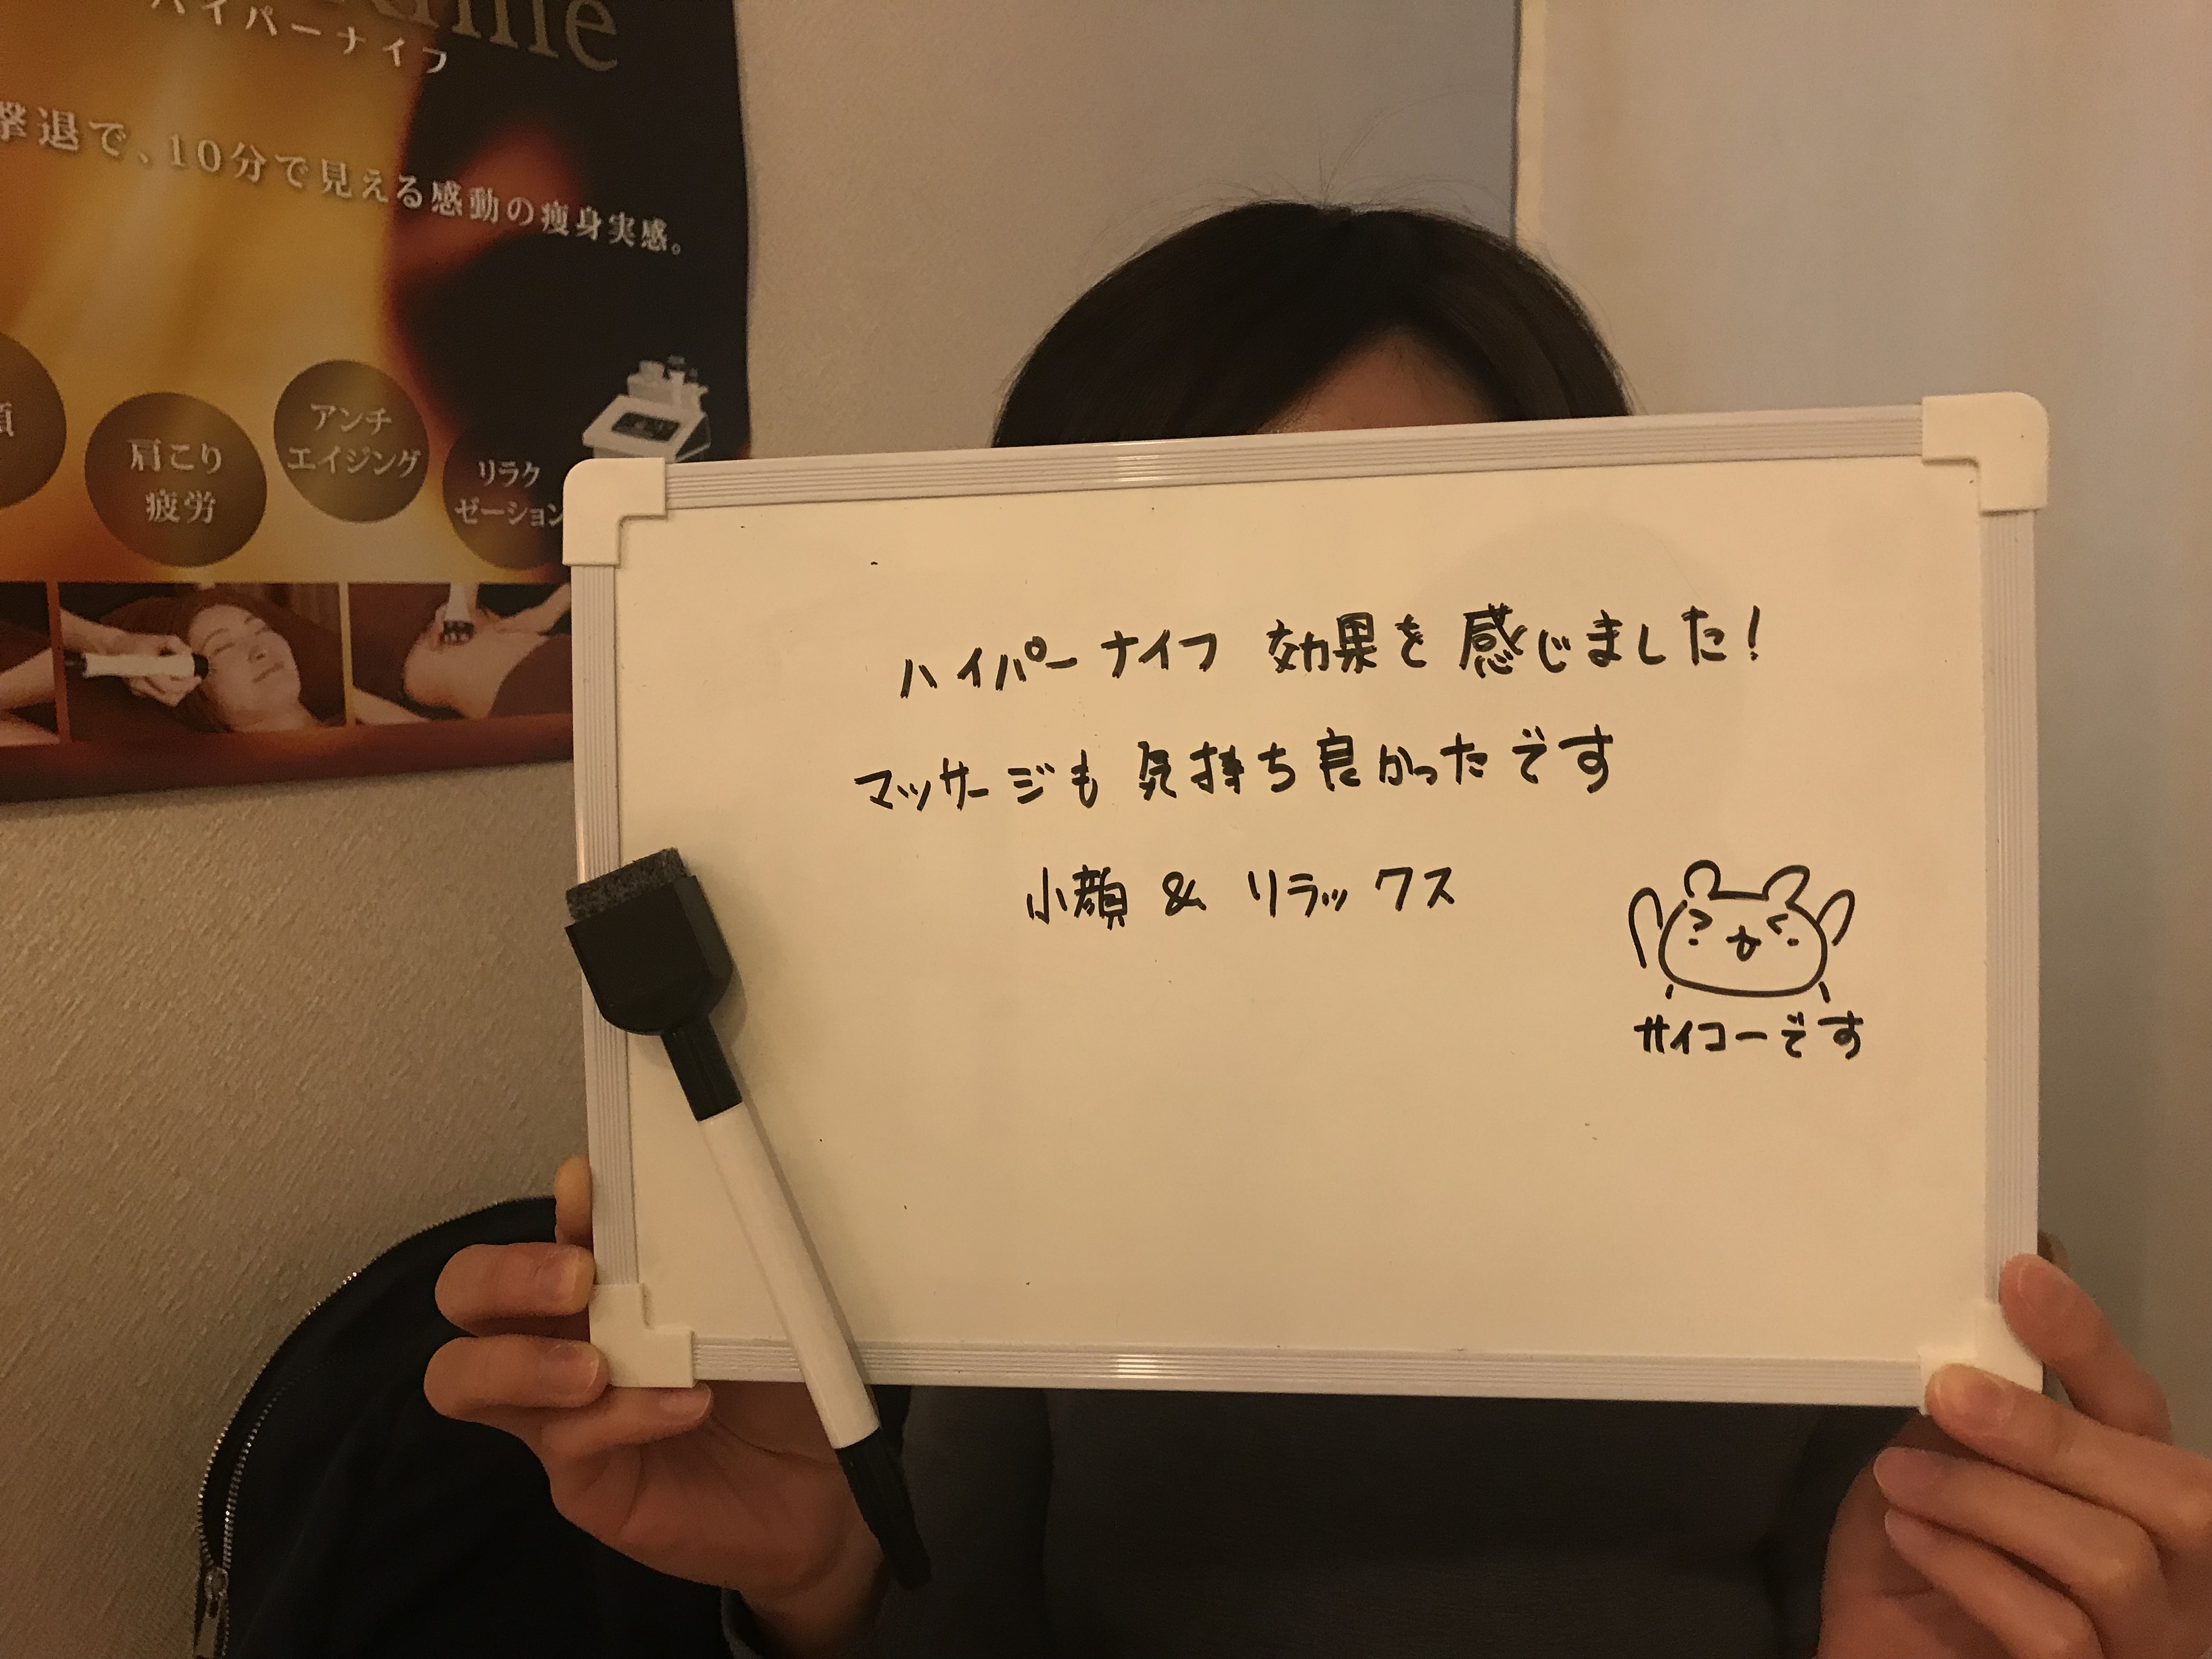 ハイパーナイフ
撃退で、10分で見える感動の痩身実感。
肩こり
疲労
アンチ
エイジング
リラク
ゼーション
ハイパーナイフ 効果を感じました!
マッサージも 気持ち良かったです
小顔 & リラックス
サイコーです